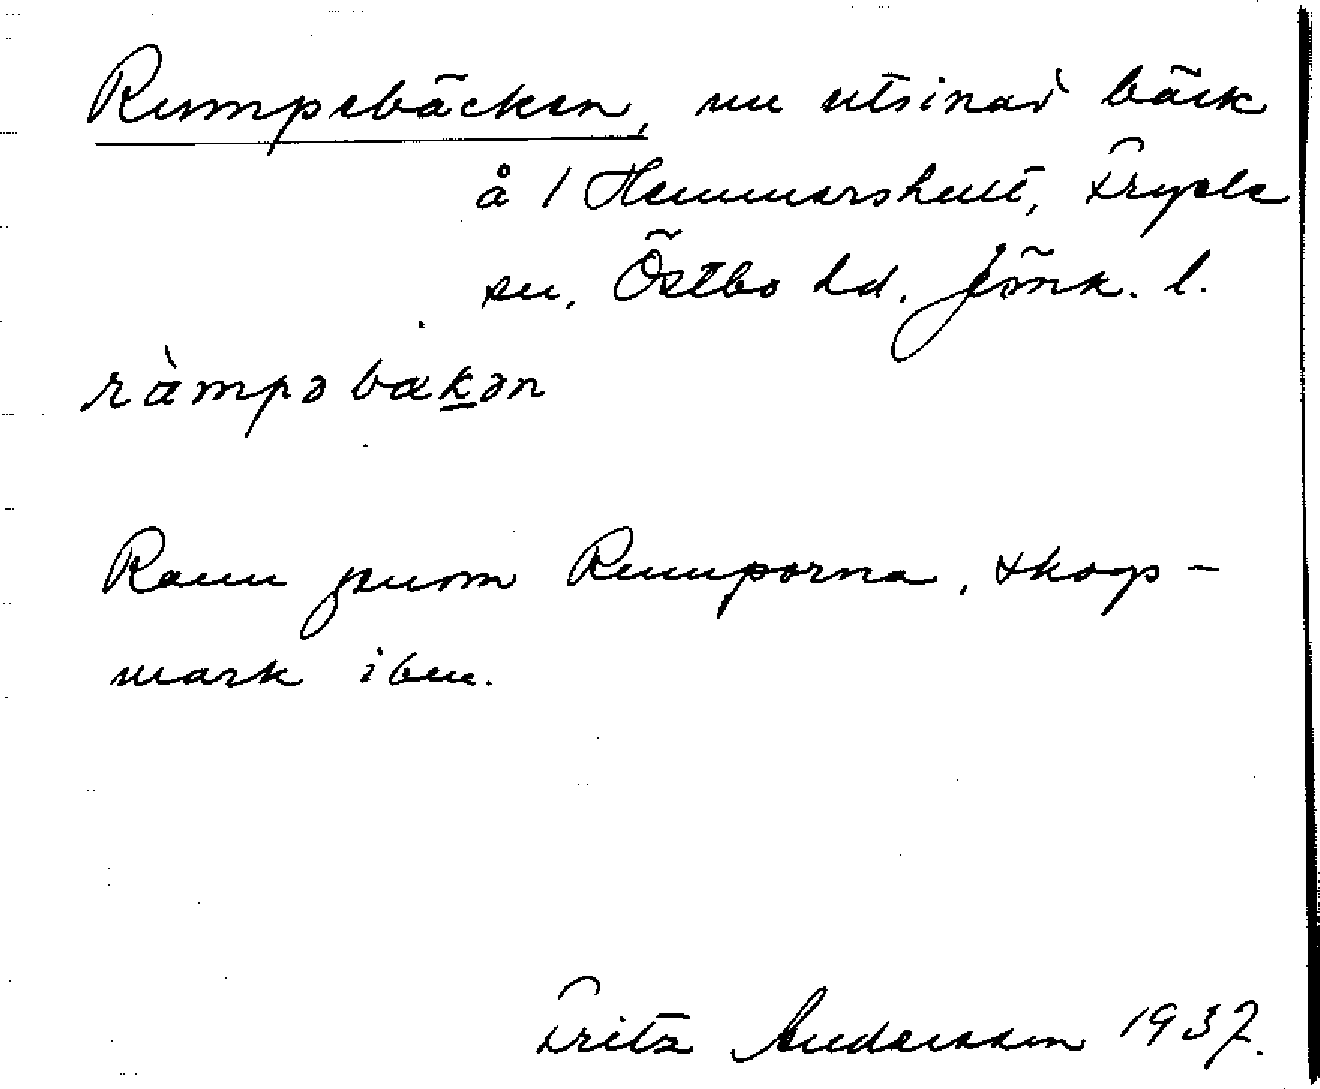 Rumpebäcken, nu utsinad bäck
å 1 Hemmershult, Fryele
sn, Östbo hd. Jönk. l.
ràmpə bækən
Rann genom Rumporna, skogs-
mark iben.
Fritz Andersson 1937.